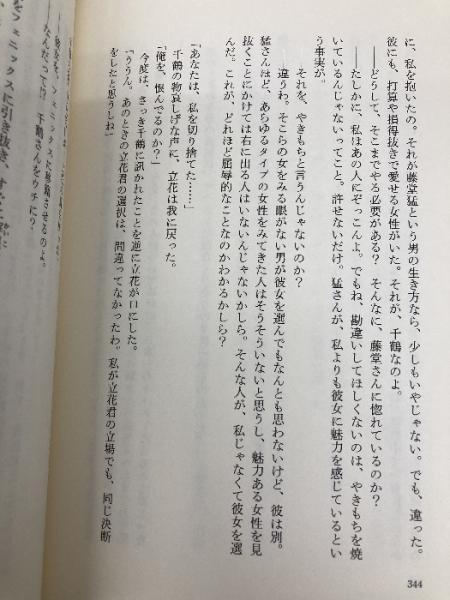 に、私を抱いたの。それが藤堂猛という男の生き方なら、少しもいやじゃない。でも、違った。
彼にも、打算や損得抜きで愛せる女性がいた。それが、千鶴なのよ。
――どうして、そこまでやる必要がある？　そんなに、藤堂さんに惚れているのか？
――たしかに、私はあの人にぞっこんよ。でもね、勘違いしてほしくないのは、やきもちを焼
いているんじゃないってこと。許せないだけ。猛さんが、私よりも彼女に魅力を感じているとい
う事実が。
それを、やきもちと言うんじゃないのか？
――違うわ。そこらの女をみる眼がない男が彼女を選んでもなんとも思わないけど、彼は別。
猛さんほど、あらゆるタイプの女性をみてきた人はそうそういないと思うし、魅力ある女性を見
抜くことにかけては右に出る人はいないんじゃないかしら。そんな人が、私じゃなくて彼女を選
んだ。これが、どれほど屈辱的なことなのかわかるかしら？
「あなたは、私を切り捨てた……」
千鶴の物哀しげな声に、立花は我に戻った。
「俺を、恨んでるのか？」
今度は、さっき千鶴に訊かれたことを逆に立花が口にした。
「ううん。あのときの立花君の選択は、間違ってなかったわ。私が立花君の立場でも、同じ決断
をしたと思うしね」
344
――なんだって!?　千鶴さんをウチに？
をフェニックスに引き抜き、